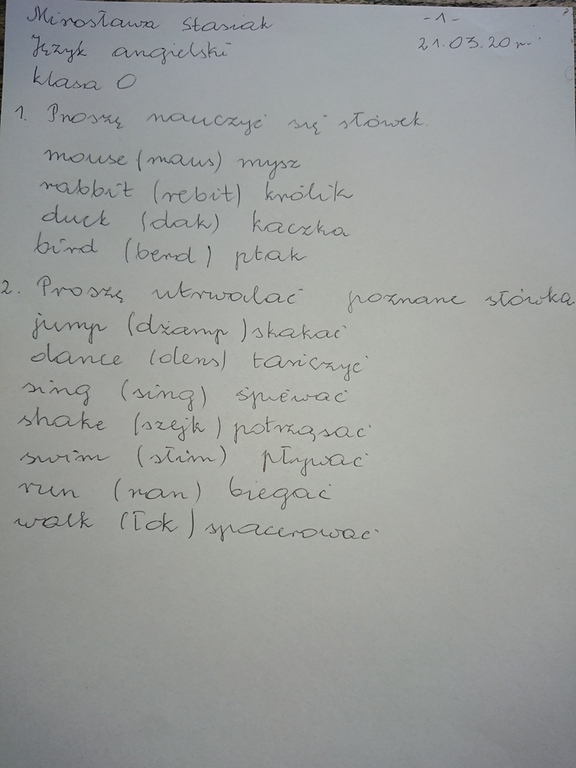 Mirosława Stasiak -1-
Język angielski 21.03.20r.
klasa 0
1. Proszę nauczyć się słówek.
mouse (maus) mysz
rabbit (rebit) królik
duck (dak) kaczka
bird (berd) ptak
2. Proszę utrwalać poznane słówka
jump (dżamp) skakać
dance (dens) tańczyć
sing (sing) śpiewać
shake (szejk) potrząsać
swim (słim) pływać
run (ran) biegać
walk (łok) spacerować